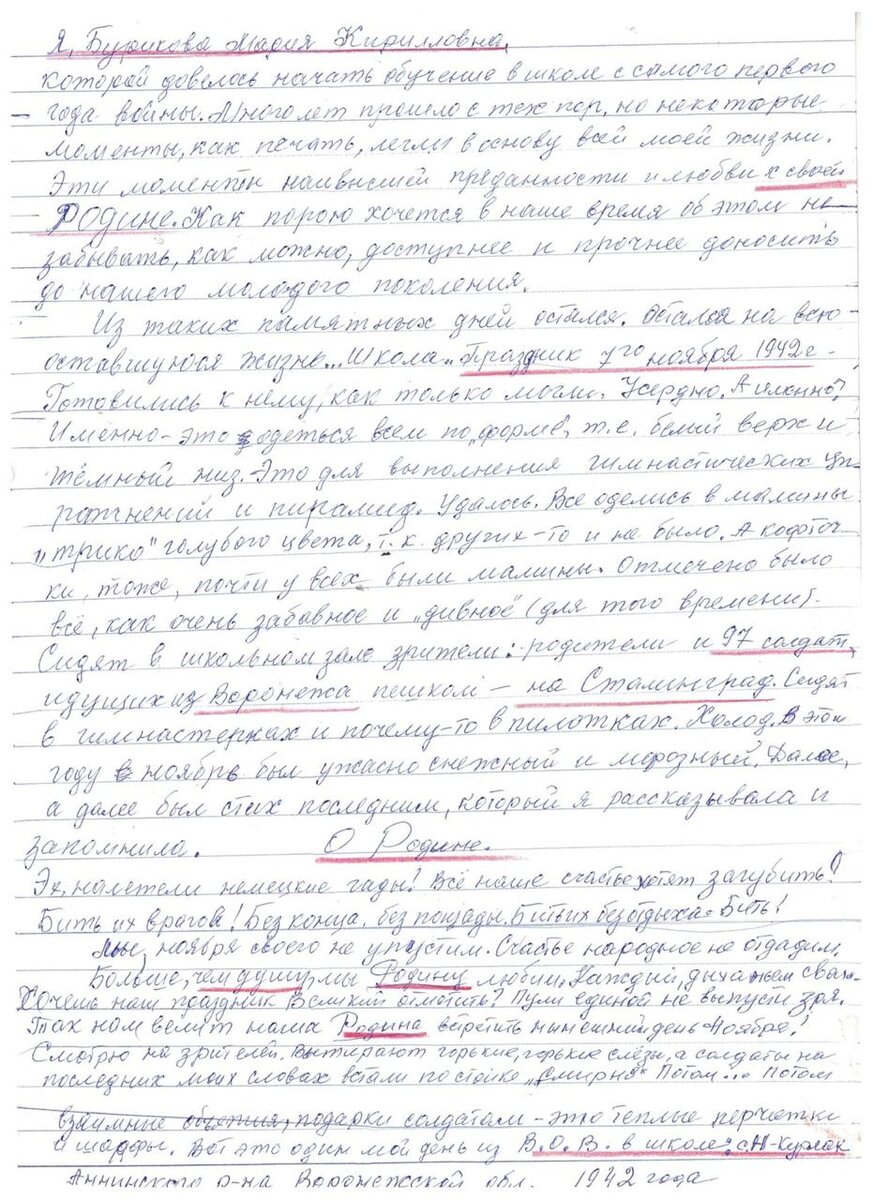 Я, Бурикова Мария Кирилловна,
которой довелось начать обучение в школе с самого первого
года войны. Много лет прошло с тех пор, но некоторые
моменты, как печать, легли в основу всей моей жизни.
Эти моменты наивысшей преданности и любви к своей
Родине. Как порою хочется в наше время об этом не
забывать, как можно, доступнее и прочнее доносить
до нашего молодого поколения.
Из таких памятных дней остался. Остался на всю
оставшуюся жизнь... Школа.. Праздник 7го ноября 1942г.
Готовились к нему, как только могли. Усердно. А именно?
Именно - это одеться всем по „форме", т.е. белый верх и
тёмный низ. Это для выполнения гимнастических уп-
ражнений и пирамид. Удалось. Все оделись в мамины
„трико" голубого цвета, т.к. других-то и не было. А кофточ-
ки, тоже, почти у всех были мамины. Отмечено было
всё, как очень забавное и „дивное" (для того времени).
Сидят в школьном зале зрители: родители и 97 солдат,
идущих из Воронежа пешком - на Сталинград. Сидят
в гимнастерках и почему-то в пилотках. Холод. В этом
году ноябрь был ужасно снежный и морозный. Далее,
а далее был стих последним, который я рассказывала и
запомнила. О Родине.
Эх, налетели немецкие гады! Всё наше счастье хотят загубить!
Бить их врагов! Без конца, без пощады. Бить их без отдыха. Бить!
Мы, ноября своего не упустим. Счастье народное не отдадим.
Больше, чем душу мы Родину любим. Каждый,
Хочешь наш праздник Великий отметить? Пули единой не выпусти зря.
Так нам велит наша Родина встретить нынешний день Ноября!
Смотрю на зрителей. Вытирают горькие, горькие слёзы, а солдаты на
последних моих словах встали по стойке „Смирно" Потом... Потом
взаимные объятия, подарки солдатам - это теплые перчатки
и шарфы. Вот это один мой день из В.О.В. в школе: с. Н-Курлак
Аннинского р-на Воронежской обл. 1942 года